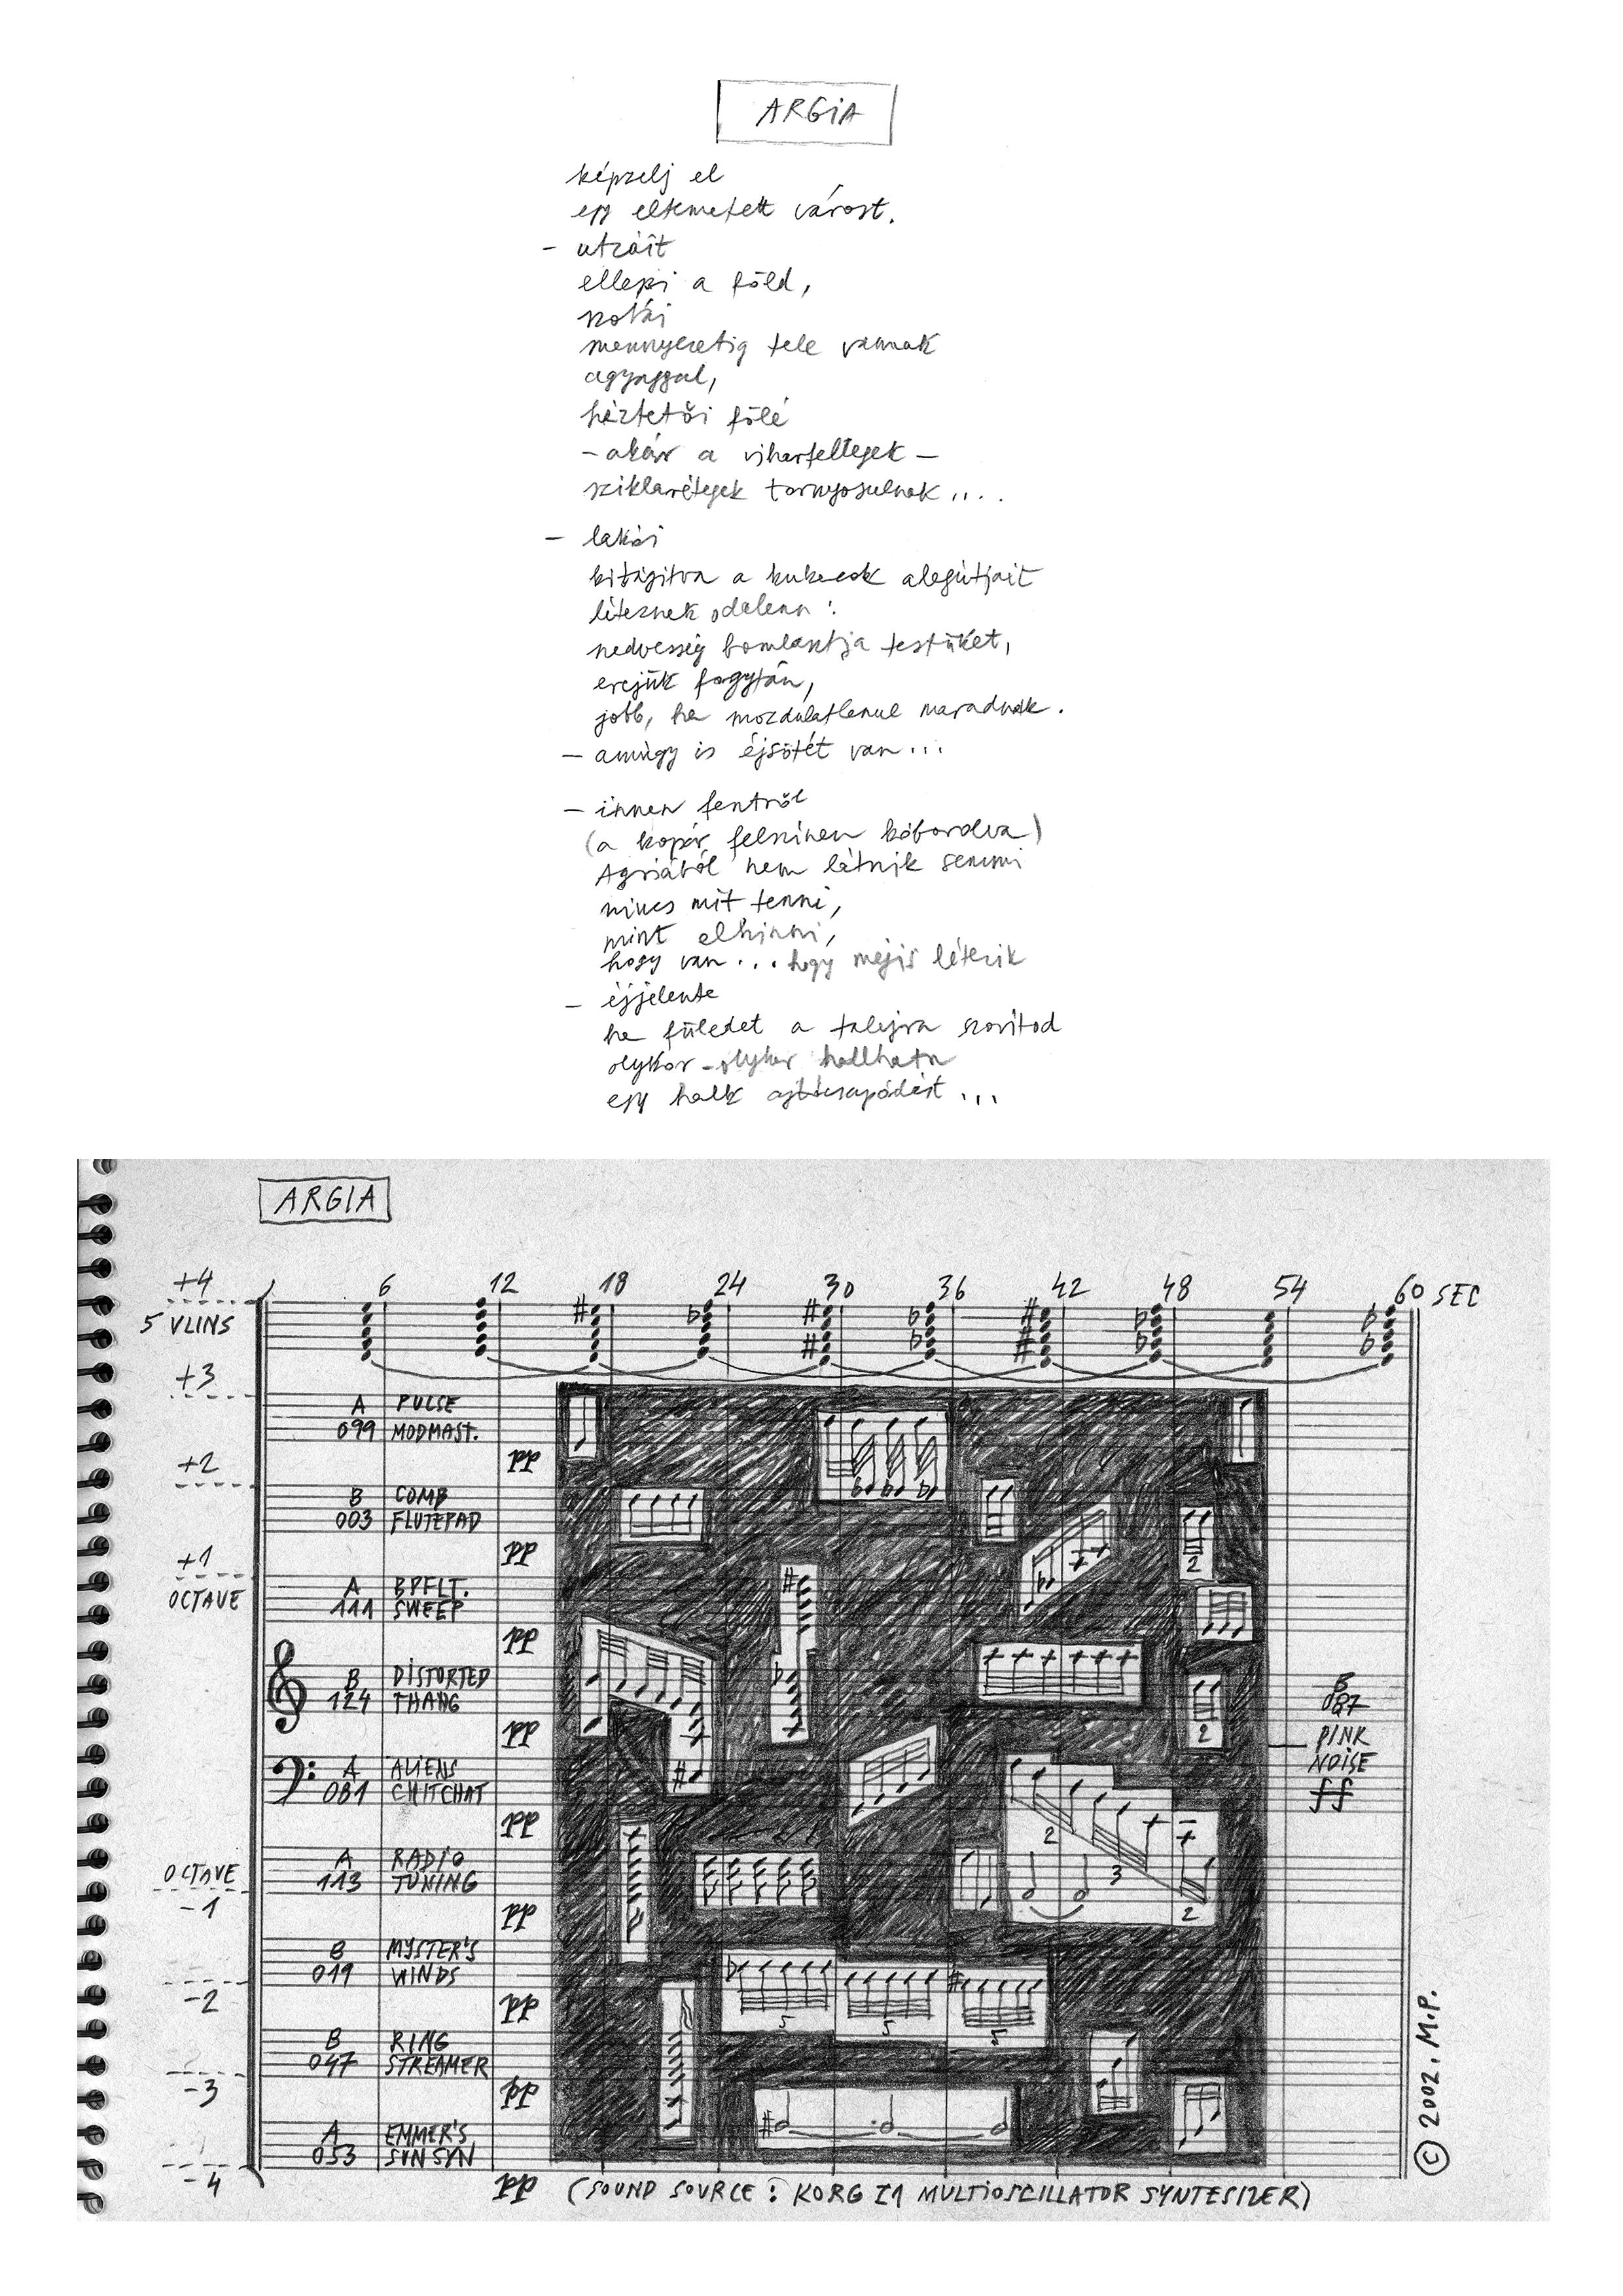 ARGiA
képzelj el
egy eltemetett várost.
- utcáit
ellepi a föld,
szobái
mennyezetig tele vannak
agyaggal,
háztetői fölé
- akár a viharfellegek -
sziklarétegek tornyosulnak....
- lakói
kitágítva a kukacok alagútjait
léteznek odalenn:
nedvesség bomlasztja testüket,
erejük fogytán,
jobb, ha mozdulatlanul maradnak.
- amúgy is éjsötét van...
- innen fentről
(a kopár felszínen kóborolva)
Agriából nem látnik semmi
nincs mit tenni,
mint elhinni,
hogy van... hogy mégis létezik
- éjjelente
ha füledet a talajra szorítod
olykor-olykor hallhatn
egy halk ajtócsapódást...
ARGIA
+4 6 12 18 24 30 36 42 48 54 60 SEC
5 VLINS
+3
A PULSE
099 MODMAST.
+2 pp
B COMB
003 FLUTEPAD
+1 pp
OCTAVE
A BPFLT.
111 SWEEP
pp
B DiSTORTED
124 THANG
pp
A ALIENS
081 CHITCHAT
pp
B
087
PINK
NOISE
ff
2
2
2
3
2
OCTAVE
-1
A RADiO
113 TUNING
pp
B MYSTER'S
019 WINDS
-2 pp
5 5 5
B RING
047 STREAMER
-3 pp
A EMMER'S
053 SYNSYN
-4 pp (SOUND SOURCE: KORG Z1 MULTiOSCILLATOR SYNTESIZER)
© 2002. M.P.